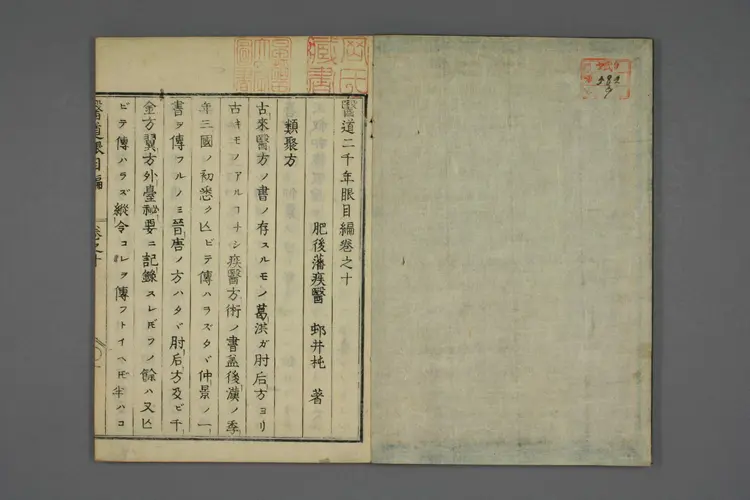 醫道二千年眼目編卷之十
肥後藩疾醫 邨井杶 著
類聚方
古來醫方ノ書ノ存スルモノ葛洪ガ肘后方ヨリ
古キモノアルヿナシ疾醫方術ノ書蓋後漢ノ季
年三國ノ初悉ク亾ビテ傳ハラズタヾ仲景ノ一
書ヲ傳フルノミ晉唐ノ方ハタヾ肘后方及ビ千
金方翼方外臺秘要ニ記錄スレ𪜈ソノ餘ハ又亾
ビテ傳ハラズ縱令コレヲ傳フトイヘ𪜈半ハコ
醫道眼目編 卷之十